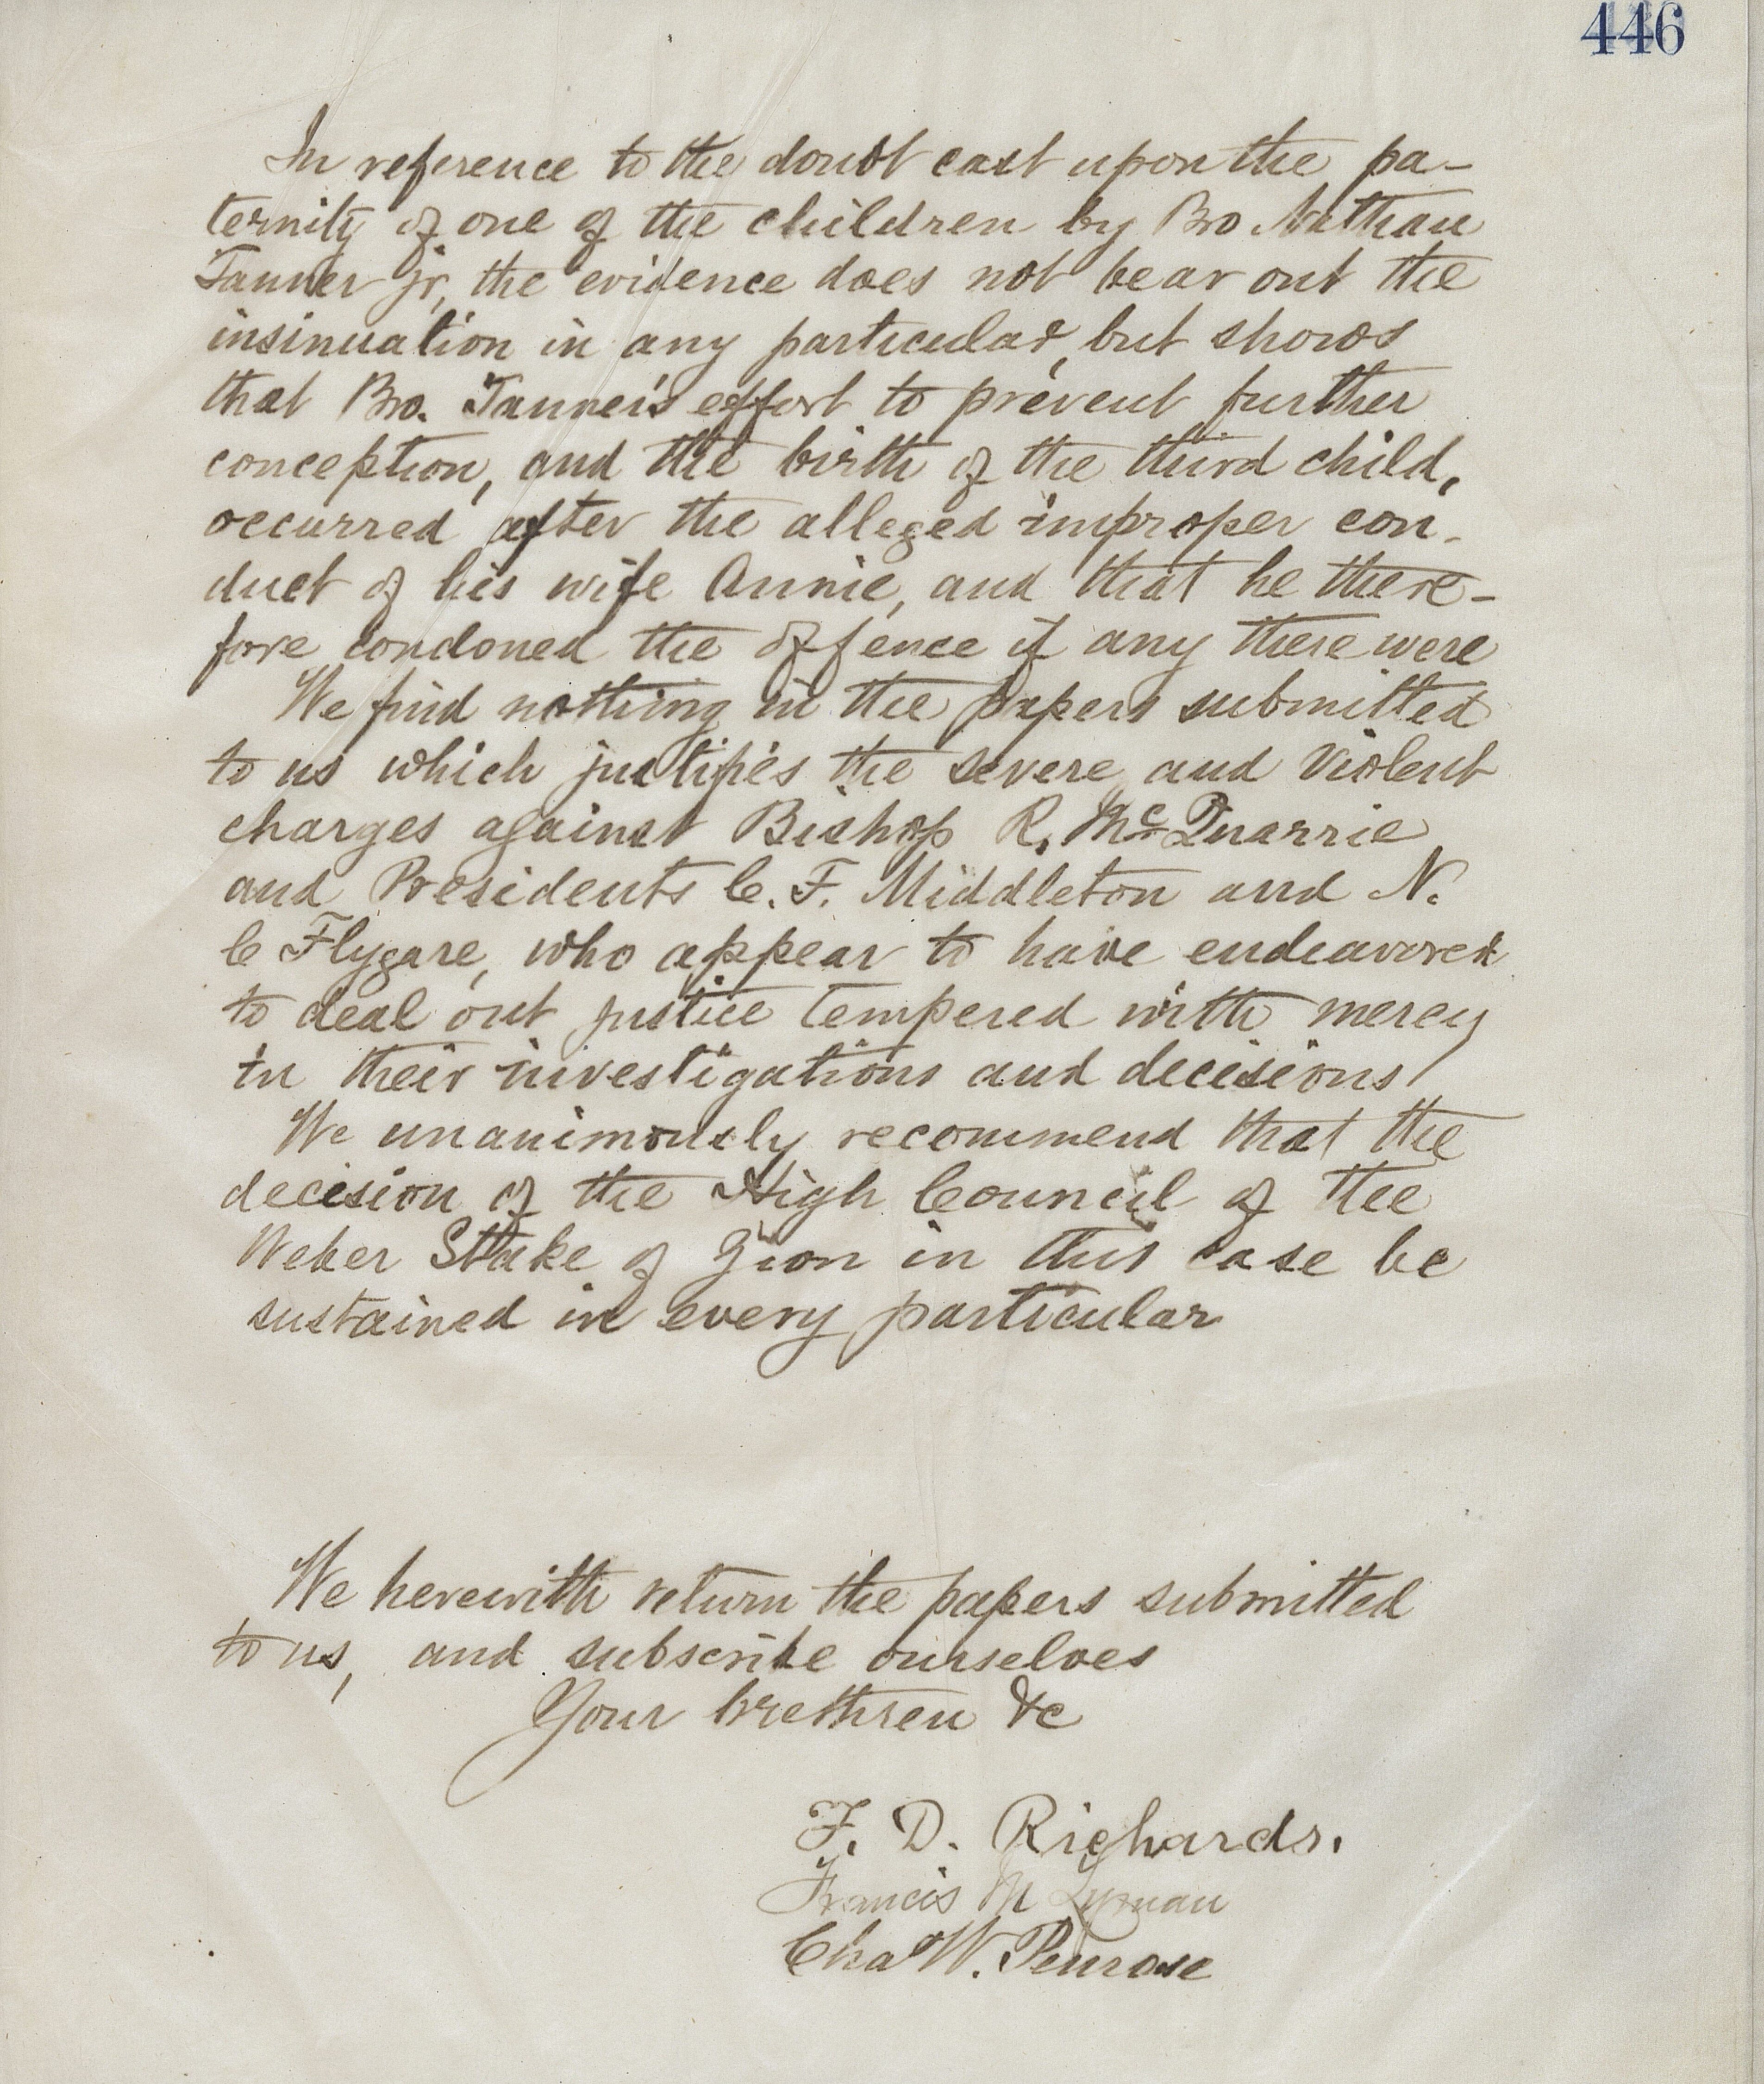 446
In reference to the doubt cast upon the pa-
ternity of one of the children by Bro Nathan
Tanner jr, the evidence does not bear out the
insinuation in any particular, but shows
that Bro. Tanner's effort to prevent further
conception, and the birth of the third child,
occurred after the alleged improper con-
duct of his wife Annie, and that he there-
fore condoned the offence if any there were
We find nothing in the papers submitted
to us which justifies the severe and violent
charges against Bishop R. McQuarrie
and Presidents C. F. Middleton and N.
C Flygare, who appear to have endeavored
to deal out justice tempered with mercy
in their investigations and decisions
We unanimously recommend that the
decision of the High Council of the
Weber Stake of Zion in this case be
sustained in every particular
We herewith return the papers submitted
to us, and subscribe ourselves
Your brethren &c
F. D. Richards.
Francis M Lyman
Chas W. Penrose